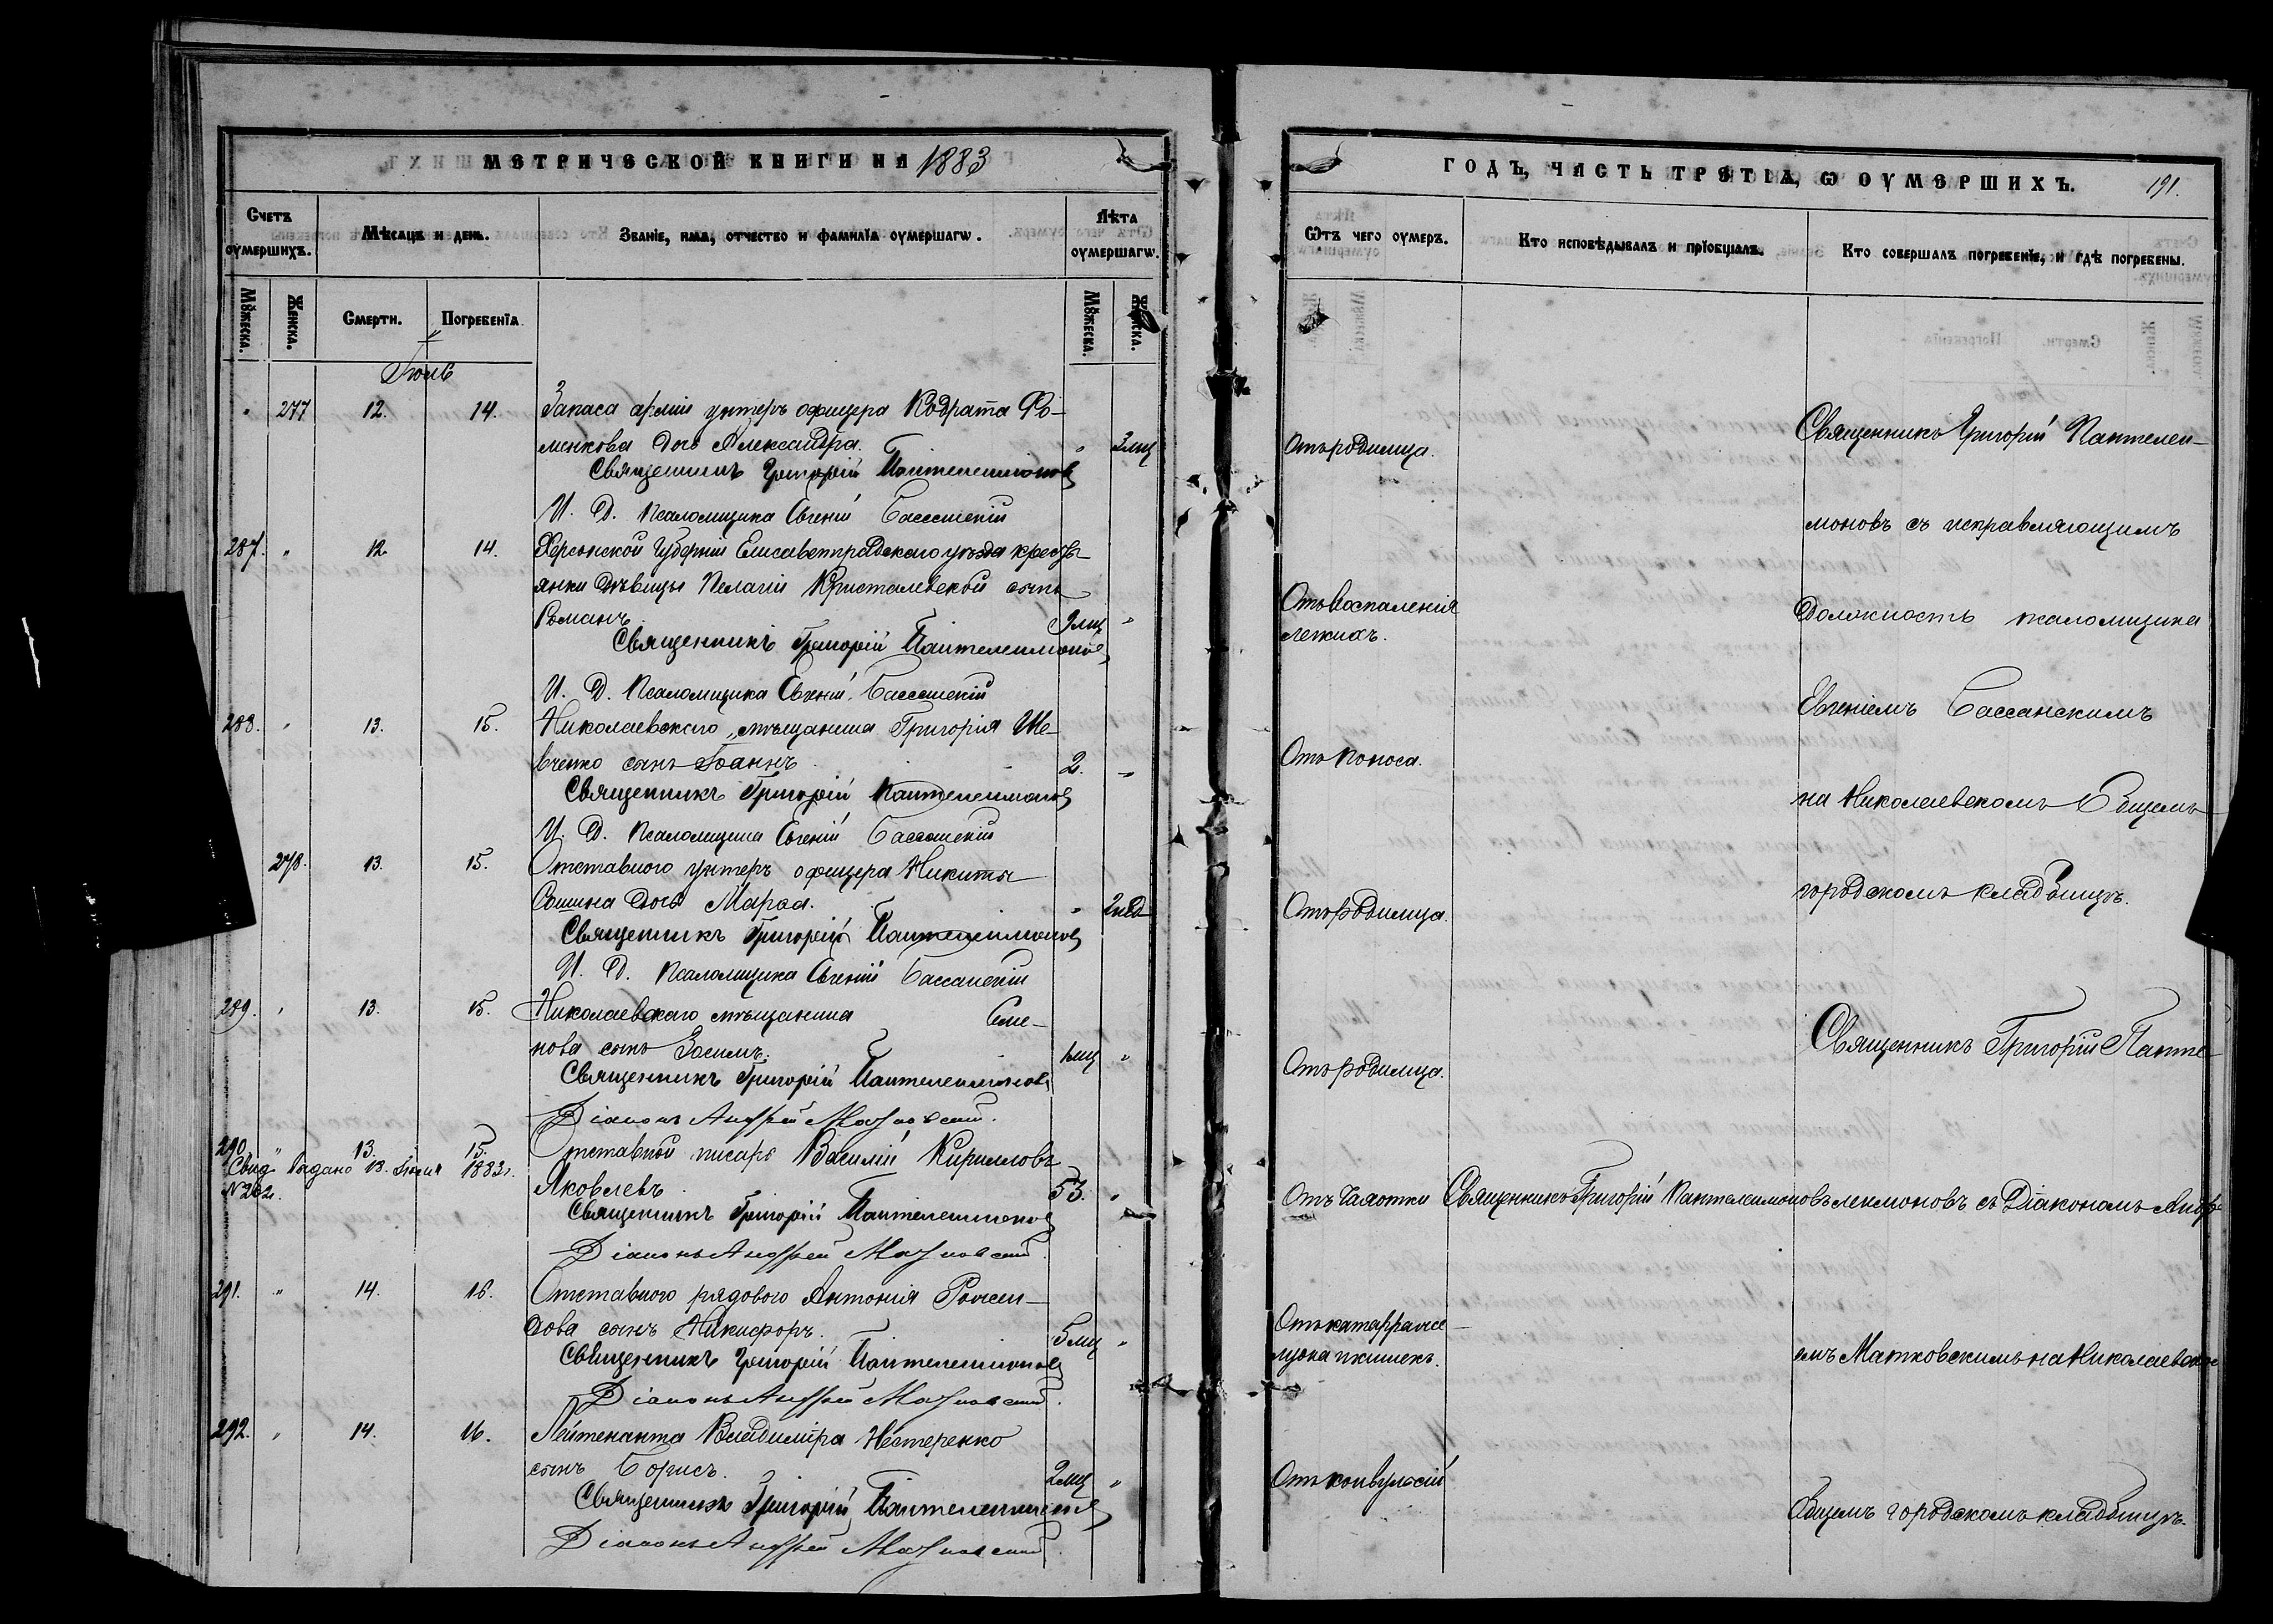 МЕТРИЧЕСКОЙ КНИГИ НА 1883
Счетъ оумершихъ.
Мѣсяцъ и день.
Званіе, имя, отчество и фамилїа оумершагѡ.
Лѣта оумершагѡ.
Мꙋжеска.
Женска.
Смерти.
Погребенїа.
Мꙋжеска.
Женска.
Іюль
" 277 12. 14. Запаса арміи унтеръ офицера Кодрата Фо-
менкова дочь Александра. " 3 мц
Священникъ Григорій Пантелеимоновъ
И. Д. Псаломщика Евгеній Бассанскій
287. " 12 14. Херсонской Губерніи Елисаветградскаго уѣзда кресть-
янки дѣвицы Пелагіи Кристалевской сынъ
Романъ. 9 мц "
Священникъ Григорій Пантелеимоновъ
И. Д. Псаломщика Евгеній Бассанскій
288. " 13. 15. Николаевскаго мѣщанина Григорія Ше-
вченко сынъ Іоаннъ. 2. "
Священникъ Григорій Пантелеимоновъ
И. Д. Псаломщика Евгеній Бассанскій
278. 13. 15. Отставного унтеръ офицера Никиты
дочь Марѳа. " 2 нед
Священникъ Григорій Пантелеимоновъ
И. Д. Псаломщика Евгеній Бассанскій
289. " 13. 15. Николаевскаго мѣщанина Семе-
нова сынъ Зосимъ. 1 мц "
Священникъ Григорій Пантелеимоновъ
Діаконъ Андрей Матковскій.
290 " 13. 15. Отставной писарь Василій Кирилловъ
Свид. выдано 13. Іюля 1883 г.
№ 202.
Яковлевъ 53. "
Священникъ Григорій Пантелеимоновъ
Діаконъ Андрей Матковскій.
291. " 14. 16. Отставного рядового Антонія
сынъ Никифоръ. 5 мц "
Священникъ Григорій Пантелеимоновъ
Діаконъ Андрей Матковскій.
292. " 14. 16. Лейтенанта Владиміра Нестеренко
сынъ Борисъ. 2 мц "
Священникъ Григорій Пантелеимоновъ
Діаконъ Андрей Матковскій.
ГОДЪ, ЧАСТЬ ТРЕТІА, Ѡ ОУМЕРШИХЪ. 191.
Ѿтъ чего оумеръ.
Кто исповѣдывалъ и прїобщалъ.
Кто совершалъ погребенїе, и гдѣ погребены.
Отъ родимца.
Священникъ Григорій Пантелеи-
моновъ съ исправляющимъ
Отъ воспаленія
легкихъ.
должность псаломщика
Евгеніемъ Бассанскимъ
Отъ поноса.
на Николаевскомъ Общемъ
городскомъ кладбищѣ.
Отъ родимца.
Священникъ Григорій Панте-
Отъ родимца.
Отъ чахотки Священникъ Григорій Пантелеимоновъ
леимоновъ съ Діакономъ Андре-
Отъ катарра же-
лудка и кишекъ.
емъ Матковскимъ на Николаевском
Отъ конвульсій
Общемъ городскомъ кладбищѣ.